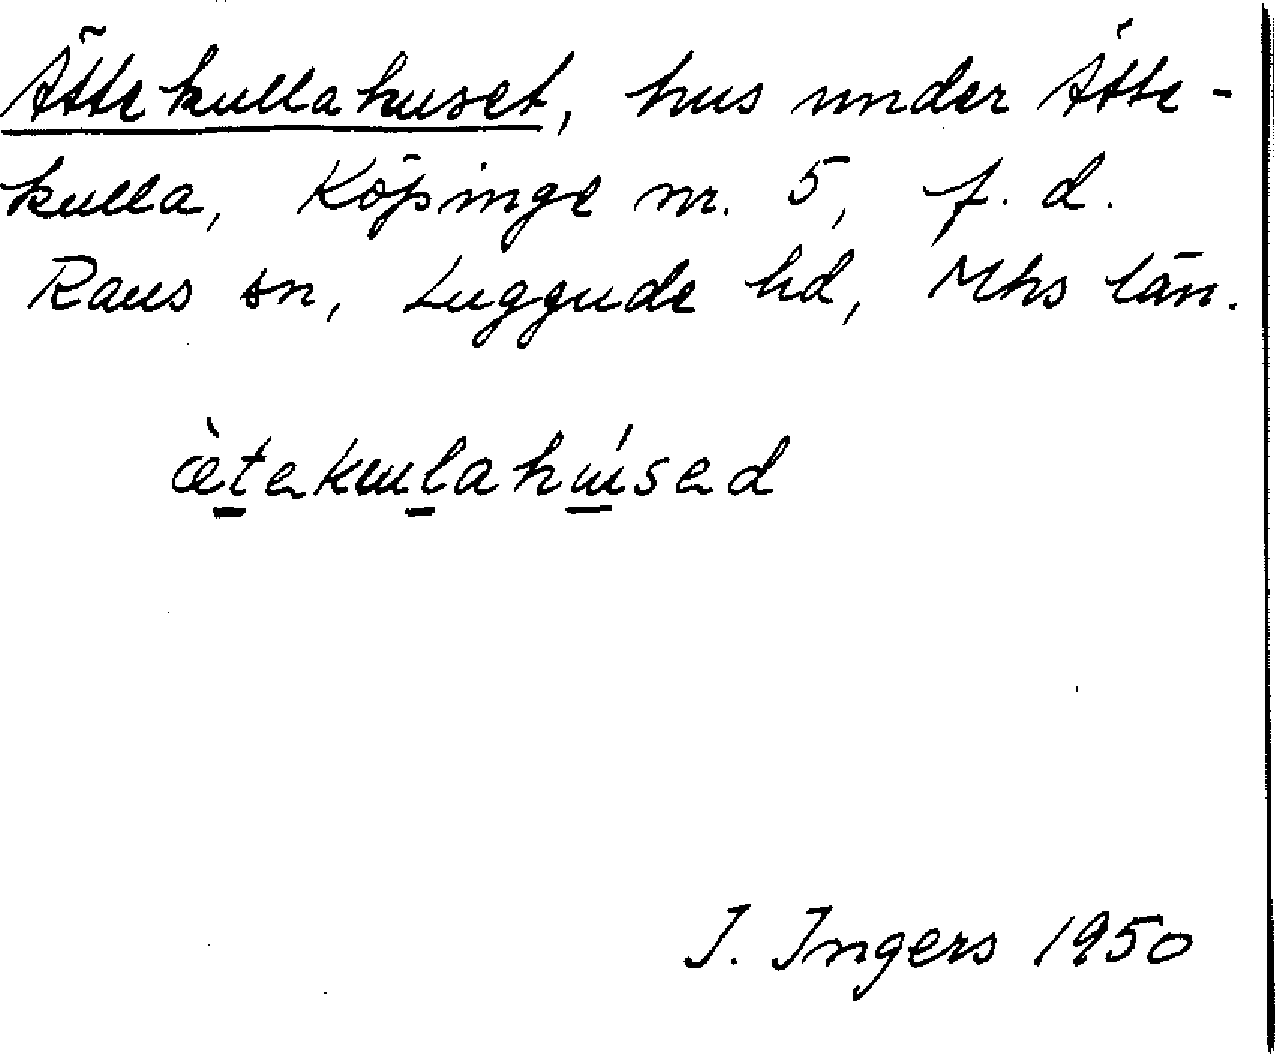 Ättekullahuset, hus under Ätte-
kulla, Köpinge nr. 5, f. d.
Raus sn, Luggude hd, Mhs län.
æ̀tekulahúsed
I. Ingers 1950